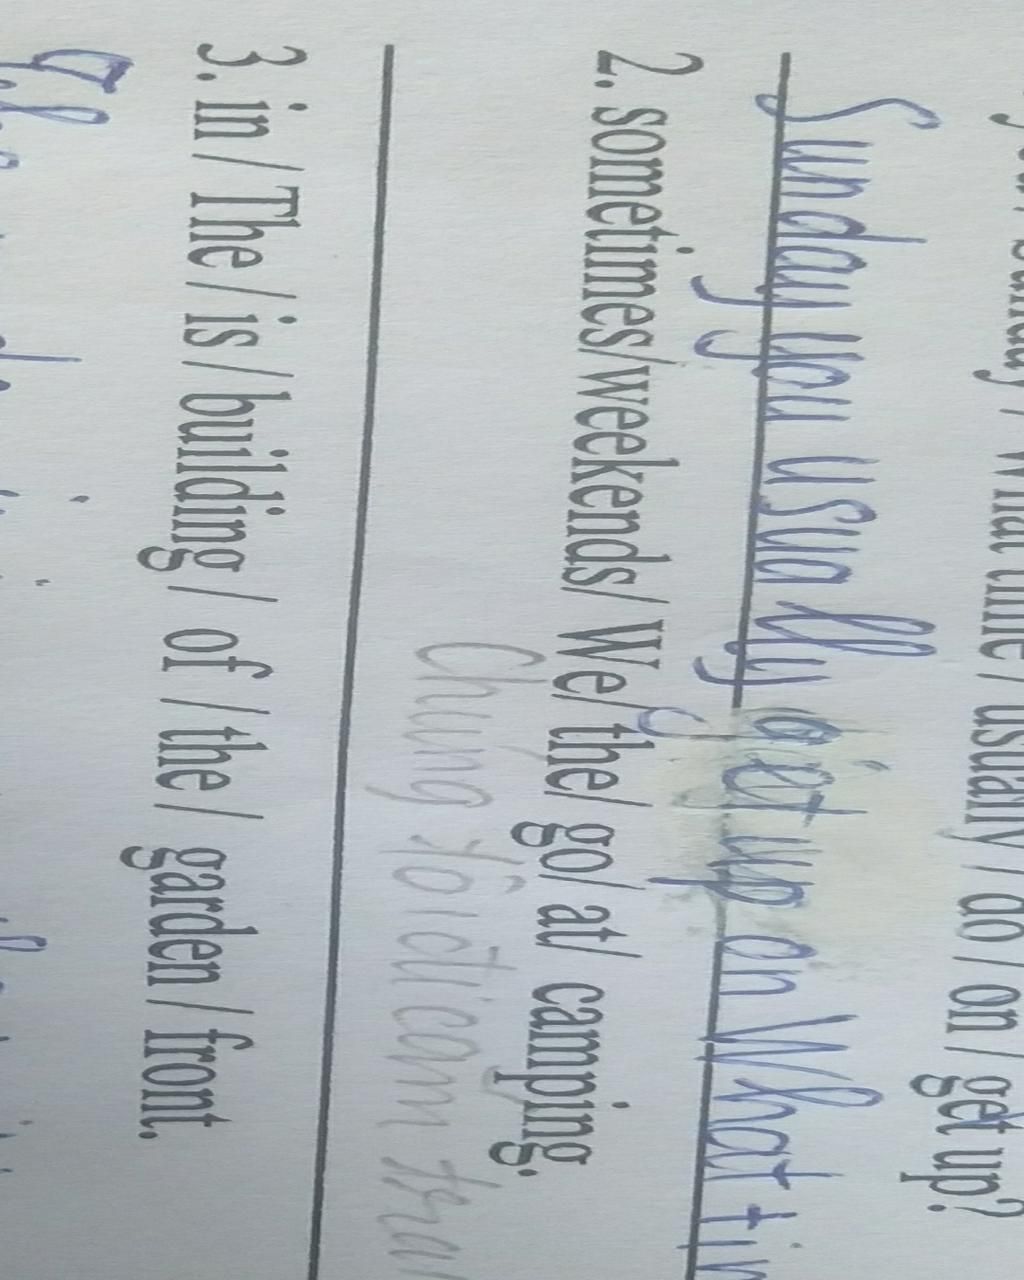 Sunday / What time / usually / do / on / get up?
Sunday you usually get up on What tim
2. sometimes/weekends/ We/ the/ go/ at/ camping.
Chúng tôi đi cắm
3. in / The / is / building / of / the / garden / front.